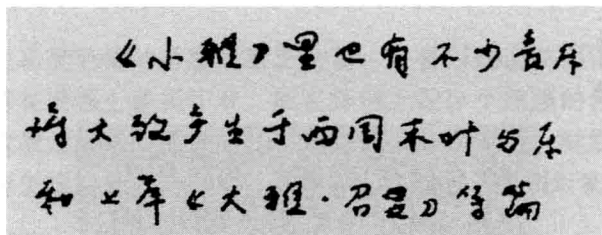 《小雅》里也有不少音乐
诗大致产生于西周末叶与东
和《大雅·召旻》等篇